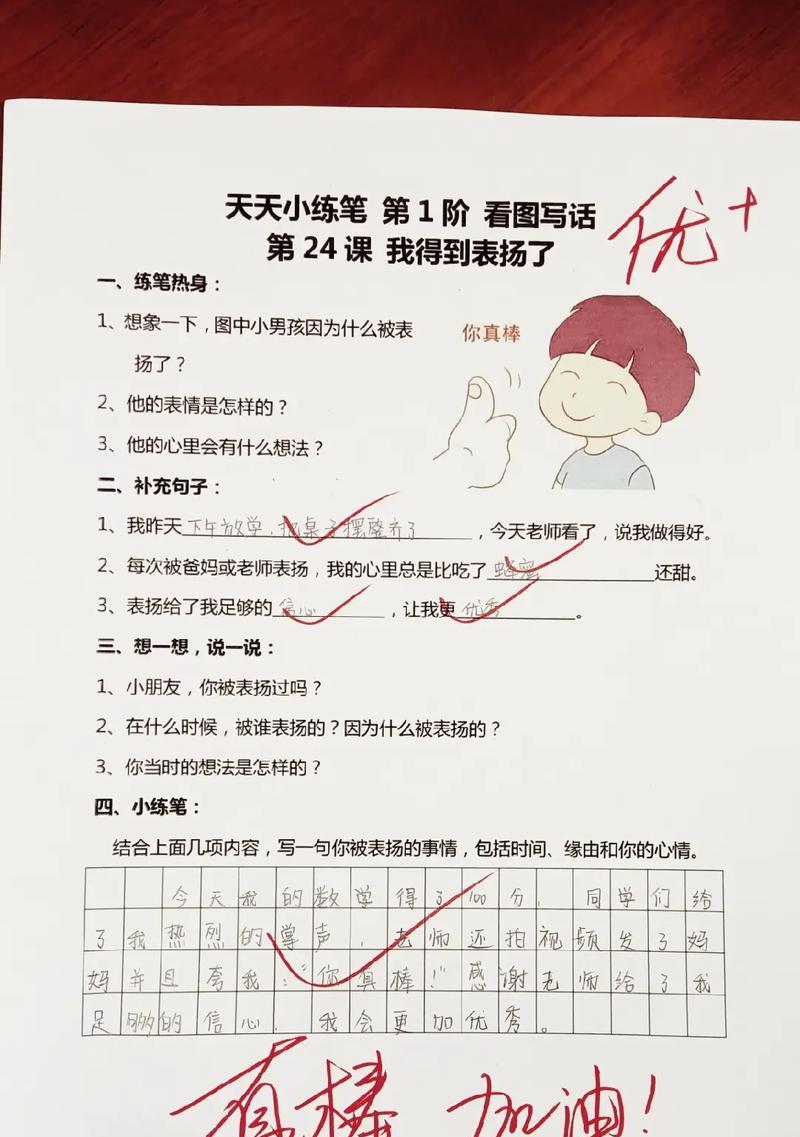 天天小练笔 第1阶 看图写话
优+
第24课 我得到表扬了
一、练笔热身：
1、想象一下，图中小男孩因为什么被表
扬了？
你真棒
2、他的表情是怎样的？
3、他的心里会有什么想法？
二、补充句子：
1、我昨天下午放学，把桌子摆整齐了，今天老师看了，说我做得好。
2、每次被爸妈或老师表扬，我的心里总是比吃了蜂蜜还甜。
3、表扬给了我足够的信心，让我更优秀。
三、想一想，说一说：
1、小朋友，你被表扬过吗？
2、在什么时候，被谁表扬的？因为什么被表扬的？
3、你当时的想法是怎样的？
四、小练笔：
结合上面几项内容，写一句你被表扬的事情，包括时间、缘由和你的心情。
今天我的数学得了100分，同学们给
了我热烈的掌声，老师还拍视频发了妈
妈并且夸我：“你真棒！”感谢老师给了我
足够的信心，我会更加优秀。
真棒 加油！